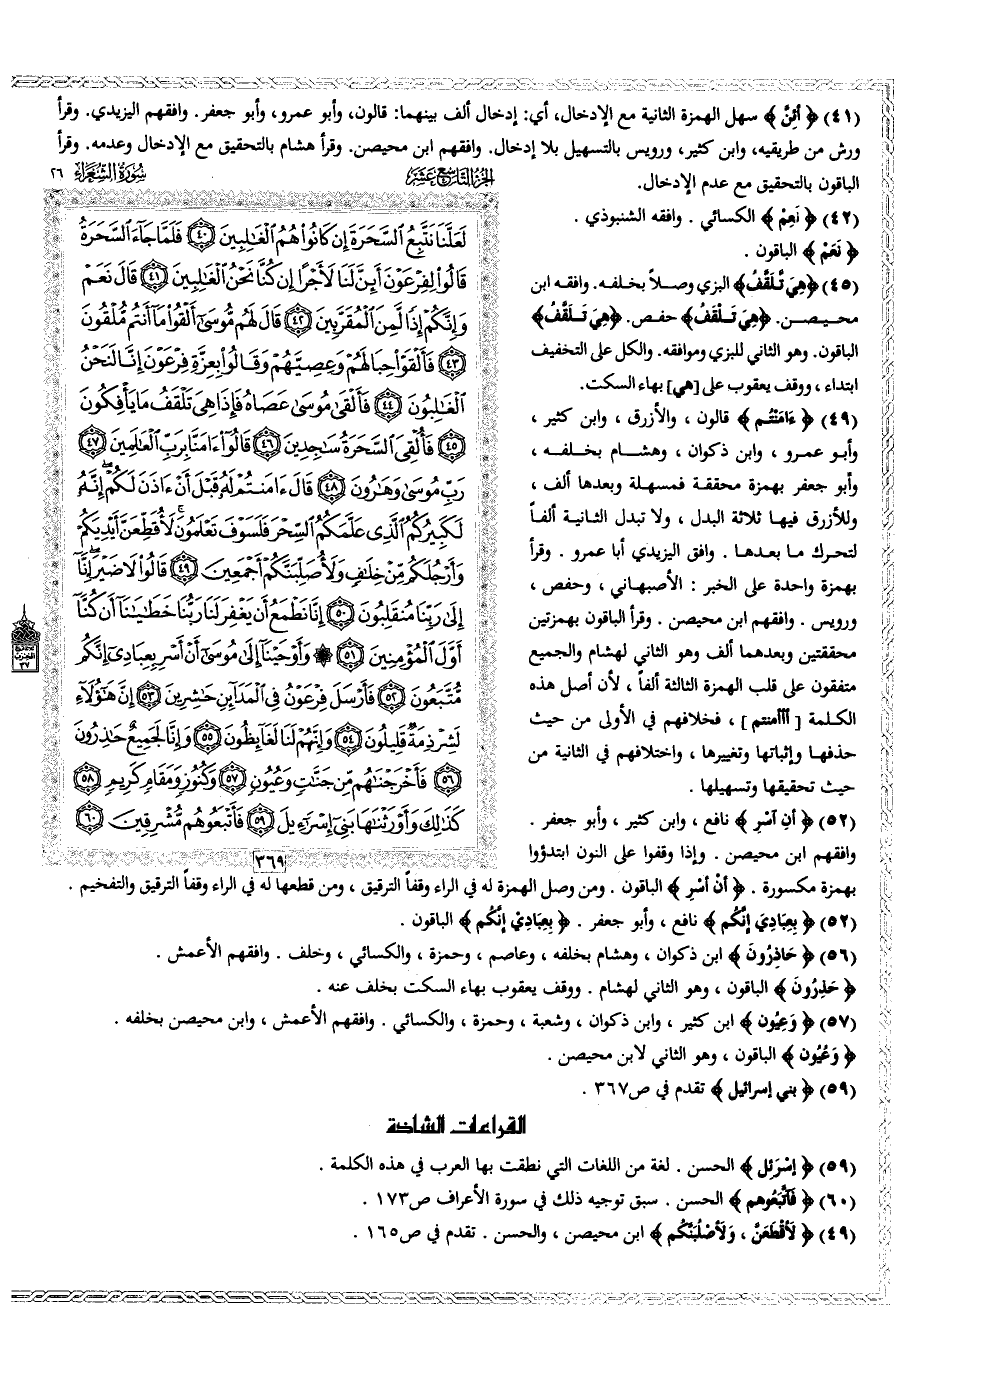 (٤١) ﴿ أَئِنَّ ﴾ سهل الهمزة الثانية مع الإدخال، أي: إدخال ألف بينهما: قالون، وأبو عمرو، وأبو جعفر. وافقهم اليزيدي. وقرأ
ورش من طريقيه، وابن كثير، ورويس بالتسهيل بلا إدخال. وافقهم ابن محيصن. وقرأ هشام بالتحقيق مع الإدخال وعدمه. وقرأ
الباقون بالتحقيق مع عدم الإدخال.
(٤٢) ﴿ نَعِمْ ﴾ الكسائي . وافقه الشنبوذي .
﴿ نَعَمْ ﴾ الباقون .
(٤٥) ﴿هِيَ تَّلَقَّفُ﴾ البزي وصلاً بخلفه. وافقه ابن
محيصن. ﴿هِيَ تَلْقَفُ﴾ حفص. ﴿هِيَ تَلَقَّفُ﴾
الباقون. وهو الثاني للبزي وموافقه. والكل على التخفيف
ابتداء ، ووقف يعقوب على [هي] بهاء السكت.
(٤٩) ﴿ ءَامَنتُم ﴾ قالون ، والأزرق ، وابن كثير ،
وأبو عمرو ، وابن ذكوان ، وهشام بخلفه ،
وأبو جعفر بهمزة محققة فمسهلة وبعدها ألف ،
وللأزرق فيها ثلاثة البدل ، ولا تبدل الثانية ألفاً
لتحرك ما بعدها . وافق اليزيدي أبا عمرو . وقرأ
بهمزة واحدة على الخبر : الأصبهاني ، وحفص ،
ورويس . وافقهم ابن محيصن . وقرأ الباقون بهمزتين
محققتين وبعدهما ألف وهو الثاني لهشام والجميع
متفقون على قلب الهمزة الثالثة ألفاً ، لأن أصل هذه
الكلمة [ أأأمنتم ] ، فخلافهم في الأولى من حيث
حذفها وإثباتها وتغييرها ، واختلافهم في الثانية من
حيث تحقيقها وتسهيلها .
(٥٢) ﴿ أَنِ اسْرِ ﴾ نافع ، وابن كثير ، وأبو جعفر .
وافقهم ابن محيصن . وإذا وقفوا على النون ابتدؤوا
بهمزة مكسورة . ﴿ أَنْ أَسْرِ ﴾ الباقون . ومن وصل الهمزة له في الراء وقفاً الترقيق ، ومن قطعها له في الراء وقفاً الترقيق والتفخيم .
(٥٢) ﴿ بِعِبَادِيَ إِنَّكُم ﴾ نافع ، وأبو جعفر . ﴿ بِعِبَادِيْ إِنَّكُم ﴾ الباقون .
(٥٦) ﴿ حَاذِرُونَ ﴾ ابن ذكوان ، وهشام بخلفه ، وعاصم ، وحمزة ، والكسائي ، وخلف . وافقهم الأعمش .
﴿ حَذِرُونَ ﴾ الباقون ، وهو الثاني لهشام . ووقف يعقوب بهاء السكت بخلف عنه .
(٥٧) ﴿ وَعِيُون ﴾ ابن كثير ، وابن ذكوان ، وشعبة ، وحمزة ، والكسائي . وافقهم الأعمش ، وابن محيصن بخلفه .
﴿ وَعُيُون ﴾ الباقون ، وهو الثاني لابن محيصن .
(٥٩) ﴿ بني إسرائيل ﴾ تقدم في ص٣٦٧ .
القراءات الشاذة
(٥٩) ﴿ إِسْرَئِل ﴾ الحسن . لغة من اللغات التي نطقت بها العرب في هذه الكلمة .
(٦٠) ﴿ فَاتَّبَعُوهم ﴾ الحسن . سبق توجيه ذلك في سورة الأعراف ص١٧٣ .
(٤٩) ﴿ لَأَقْطَعَنَّ ، وَلَأَصْلُبَنَّكُم ﴾ ابن محيصن ، والحسن . تقدم في ص١٦٥ .
الجزء التاسع عشر
سورة الشعراء ٢٦
لَعَلَّنَا نَتَّبِعُ السَّحَرَةَ إِن كَانُوا هُمُ الْغَالِبِينَ ٤٠ فَلَمَّا جَاءَ السَّحَرَةُ
قَالُوا لِفِرْعَوْنَ أَئِنَّ لَنَا لَأَجْرًا إِن كُنَّا نَحْنُ الْغَالِبِينَ ٤١ قَالَ نَعَمْ
وَإِنَّكُمْ إِذًا لَّمِنَ الْمُقَرَّبِينَ ٤٢ قَالَ لَهُم مُّوسَىٰ أَلْقُوا مَا أَنتُم مُّلْقُونَ
٤٣ فَأَلْقَوْا حِبَالَهُمْ وَعِصِيَّهُمْ وَقَالُوا بِعِزَّةِ فِرْعَوْنَ إِنَّا لَنَحْنُ
الْغَالِبُونَ ٤٤ فَأَلْقَىٰ مُوسَىٰ عَصَاهُ فَإِذَا هِيَ تَلْقَفُ مَا يَأْفِكُونَ
٤٥ فَأُلْقِيَ السَّحَرَةُ سَاجِدِينَ ٤٦ قَالُوا آمَنَّا بِرَبِّ الْعَالَمِينَ ٤٧
رَبِّ مُوسَىٰ وَهَارُونَ ٤٨ قَالَ ءَامَنتُمْ لَهُ قَبْلَ أَنْ ءَاذَنَ لَكُمْ إِنَّهُ
لَكَبِيرُكُمُ الَّذِي عَلَّمَكُمُ السِّحْرَ فَلَسَوْفَ تَعْلَمُونَ لَأُقَطِّعَنَّ أَيْدِيَكُمْ
وَأَرْجُلَكُم مِّنْ خِلَافٍ وَلَأُصَلِّبَنَّكُمْ أَجْمَعِينَ ٤٩ قَالُوا لَا ضَيْرَ إِنَّا
إِلَىٰ رَبِّنَا مُنقَلِبُونَ ٥٠ إِنَّا نَطْمَعُ أَن يَغْفِرَ لَنَا رَبُّنَا خَطَايَانَا أَن كُنَّا
أَوَّلَ الْمُؤْمِنِينَ ٥١ ۞ وَأَوْحَيْنَا إِلَىٰ مُوسَىٰ أَنْ أَسْرِ بِعِبَادِي إِنَّكُم
مُّتَّبَعُونَ ٥٢ فَأَرْسَلَ فِرْعَوْنُ فِي الْمَدَائِنِ حَاشِرِينَ ٥٣ إِنَّ هَٰؤُلَاءِ
لَشِرْذِمَةٌ قَلِيلُونَ ٥٤ وَإِنَّهُمْ لَنَا لَغَائِظُونَ ٥٥ وَإِنَّا لَجَمِيعٌ حَاذِرُونَ
٥٦ فَأَخْرَجْنَاهُم مِّن جَنَّاتٍ وَعُيُونٍ ٥٧ وَكُنُوزٍ وَمَقَامٍ كَرِيمٍ ٥٨
كَذَٰلِكَ وَأَوْرَثْنَاهَا بَنِي إِسْرَاءِيلَ ٥٩ فَأَتْبَعُوهُم مُّشْرِقِينَ ٦٠
٣٦٩
٣٧